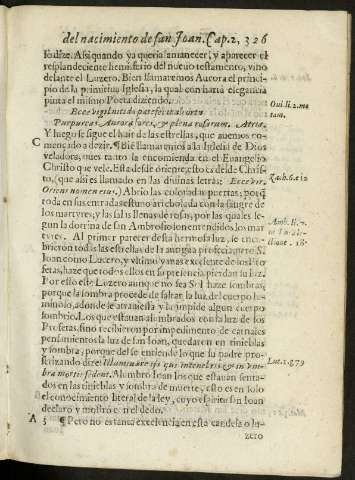 del nacimiento de san Joan. Cap. 2. 326
lo dize. Assi quando ya queria amanecer, y aparecer el
resplandeciente hemisferio del nueuo testamento, vino
delante el Luzero. Bien llamaremos Aurora el princi-
pio de la primitiua Iglesia, la qual con harta elegancia
pinta el mismo Poeta diziendo.
Oui. li. 2. me
tam.
Ecce vigil nitido patefecit ab ortu
Purpureas Aurora fores, & plena rosarum. Atria.
Y luego se sigue el huir de las estrellas, que auemos co-
C mençado a dezir. ¶ Bië llamaremos a la Iglesia de Dios
veladora, pues tanto la encomienda en el Euangelio
Christo que vele. Esta desde oriente, esto es desde Chris-
to, (que assi es llamado en las diuinas letras; Ecce vir.
Zach. 6. c 12
Oriens nomen eius.) Abrio las coloradas puertas; porq̃
toda en su entrada estuuo arrebolada con la sangre de
los martyres, y las salas llenas de rosas, por las quales se-
gun la dotrina de san Ambrosio son entendidos los mar-
Amb. li. 7.
tyres. Al primer parecer desta hermosa luz, se encu-
brieron todas las estrellas de la antigua profecia, pero S.
Ioan como Luzero, y vltimo y mas excelente de los Pro
fetas, haze que todos ellos en su presencia pierdan su luz.
Por esso este Luzero aunque no sea Sol haze sombras;
porque la sombra procede de faltar la luz del cuerpo lu-
minoso, adonde se atrauiessa y la impide algun cuerpo
sombrio. Los que estauan alumbrados con la luz de los
Profetas, sino recibieron por impedimento de carnales
pensamientos la luz de san Ioan, quedaron en tinieblas
y sombra; porque del se entiende lo que su padre pro-
fetizando dixo: Illuminare his qui in tenebris, & in vm-
Luc. 1. g 79
bra mortis sedent. Alumbro Ioan los que estauan senta-
dos en las tinieblas y sombra de muerte, esto es en solo
el conocimiento literal de la ley, cuyo espiritu san Ioan
declaro y mostro con el dedo.
A 5 ¶ Pero no estan la excelencia en esta candela o lu-
zero